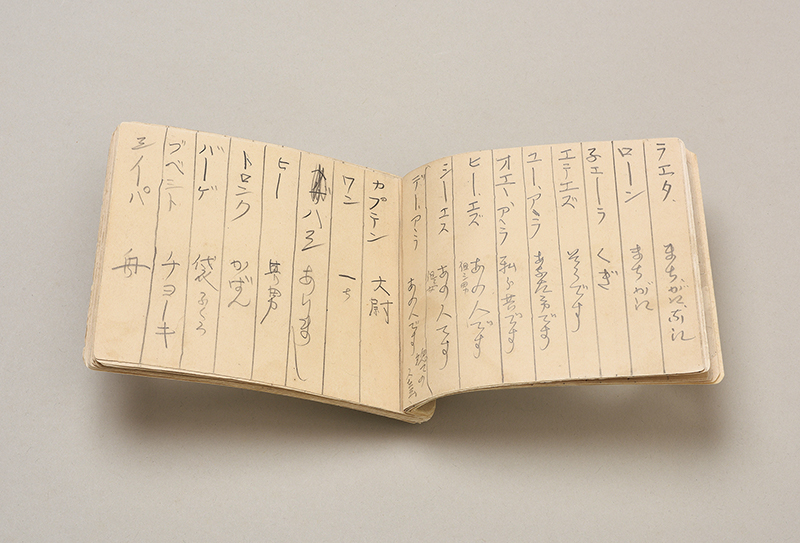 ラエタ まちがいぶに
ローン まちがい
子エーラ くぎ
エテエズ そうです
ユー、アラ あなた方です
オエー、アラ 私ら共です
ヒー、エズ あの人です
シーエス あの人です
デー、アラ あの人です
カプテン 大尉
ワン 一ち
ハヱ ありまし
ヒー 男
トロンク かばん
バーゲ 袋ふくろ
ブベシト チヨーキ
シイーパ 舟